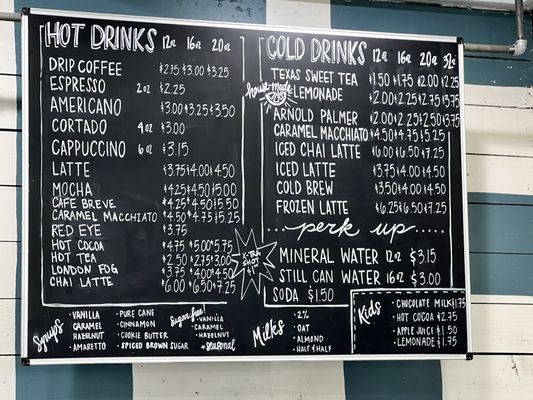 HOT DRINKS 12oz 16oz 20oz
DRIP COFFEE $2.75 $3.00 $3.25
ESPRESSO 2oz $2.25
AMERICANO $3.00 $3.25 $3.50
CORTADO 4oz $3.00
CAPPUCCINO 6oz $3.15
LATTE $3.75 $4.00 $4.50
MOCHA $4.25 $4.50 $5.00
CAFE BREVE $4.25 $4.50 $5.50
CARAMEL MACCHIATO $4.50 $4.75 $5.25
RED EYE $3.75
HOT COCOA $4.75 $5.00 $5.75
HOT TEA $2.50 $2.75 $3.00
LONDON FOG $3.75 $4.00 $4.50
CHAI LATTE $6.00 $6.50 $7.25
COLD DRINKS 12oz 16oz 20oz 32oz
TEXAS SWEET TEA $1.50 $1.75 $2.00 $2.25
house made LEMONADE $2.00 $2.25 $2.75 $3.75
ARNOLD PALMER $2.00 $2.25 $2.50 $3.75
CARAMEL MACCHIATO $4.50 $4.75 $5.25
ICED CHAI LATTE $6.00 $6.50 $7.25
ICED LATTE $3.75 $4.00 $4.50
COLD BREW $3.50 $4.00 $4.50
FROZEN LATTE $6.25 $6.50 $7.25
perk up
MINERAL WATER 12oz $3.15
STILL CAN WATER 16oz $3.00
SODA $1.50
Syrups
· VANILLA
CARAMEL
HAZELNUT
· AMARETTO
· PURE CANE
· CINNAMON
· COOKIE BUTTER
· SPICED BROWN SUGAR
Sugar free!
· VANILLA
· CARAMEL
· HAZELNUT
seasonal
Milks
· 2%
· OAT
· ALMOND
· HALF & HALF
Kids
· CHOCOLATE MILK $1.75
· HOT COCOA $2.75
· APPLE JUICE $1.50
· LEMONADE $1.75